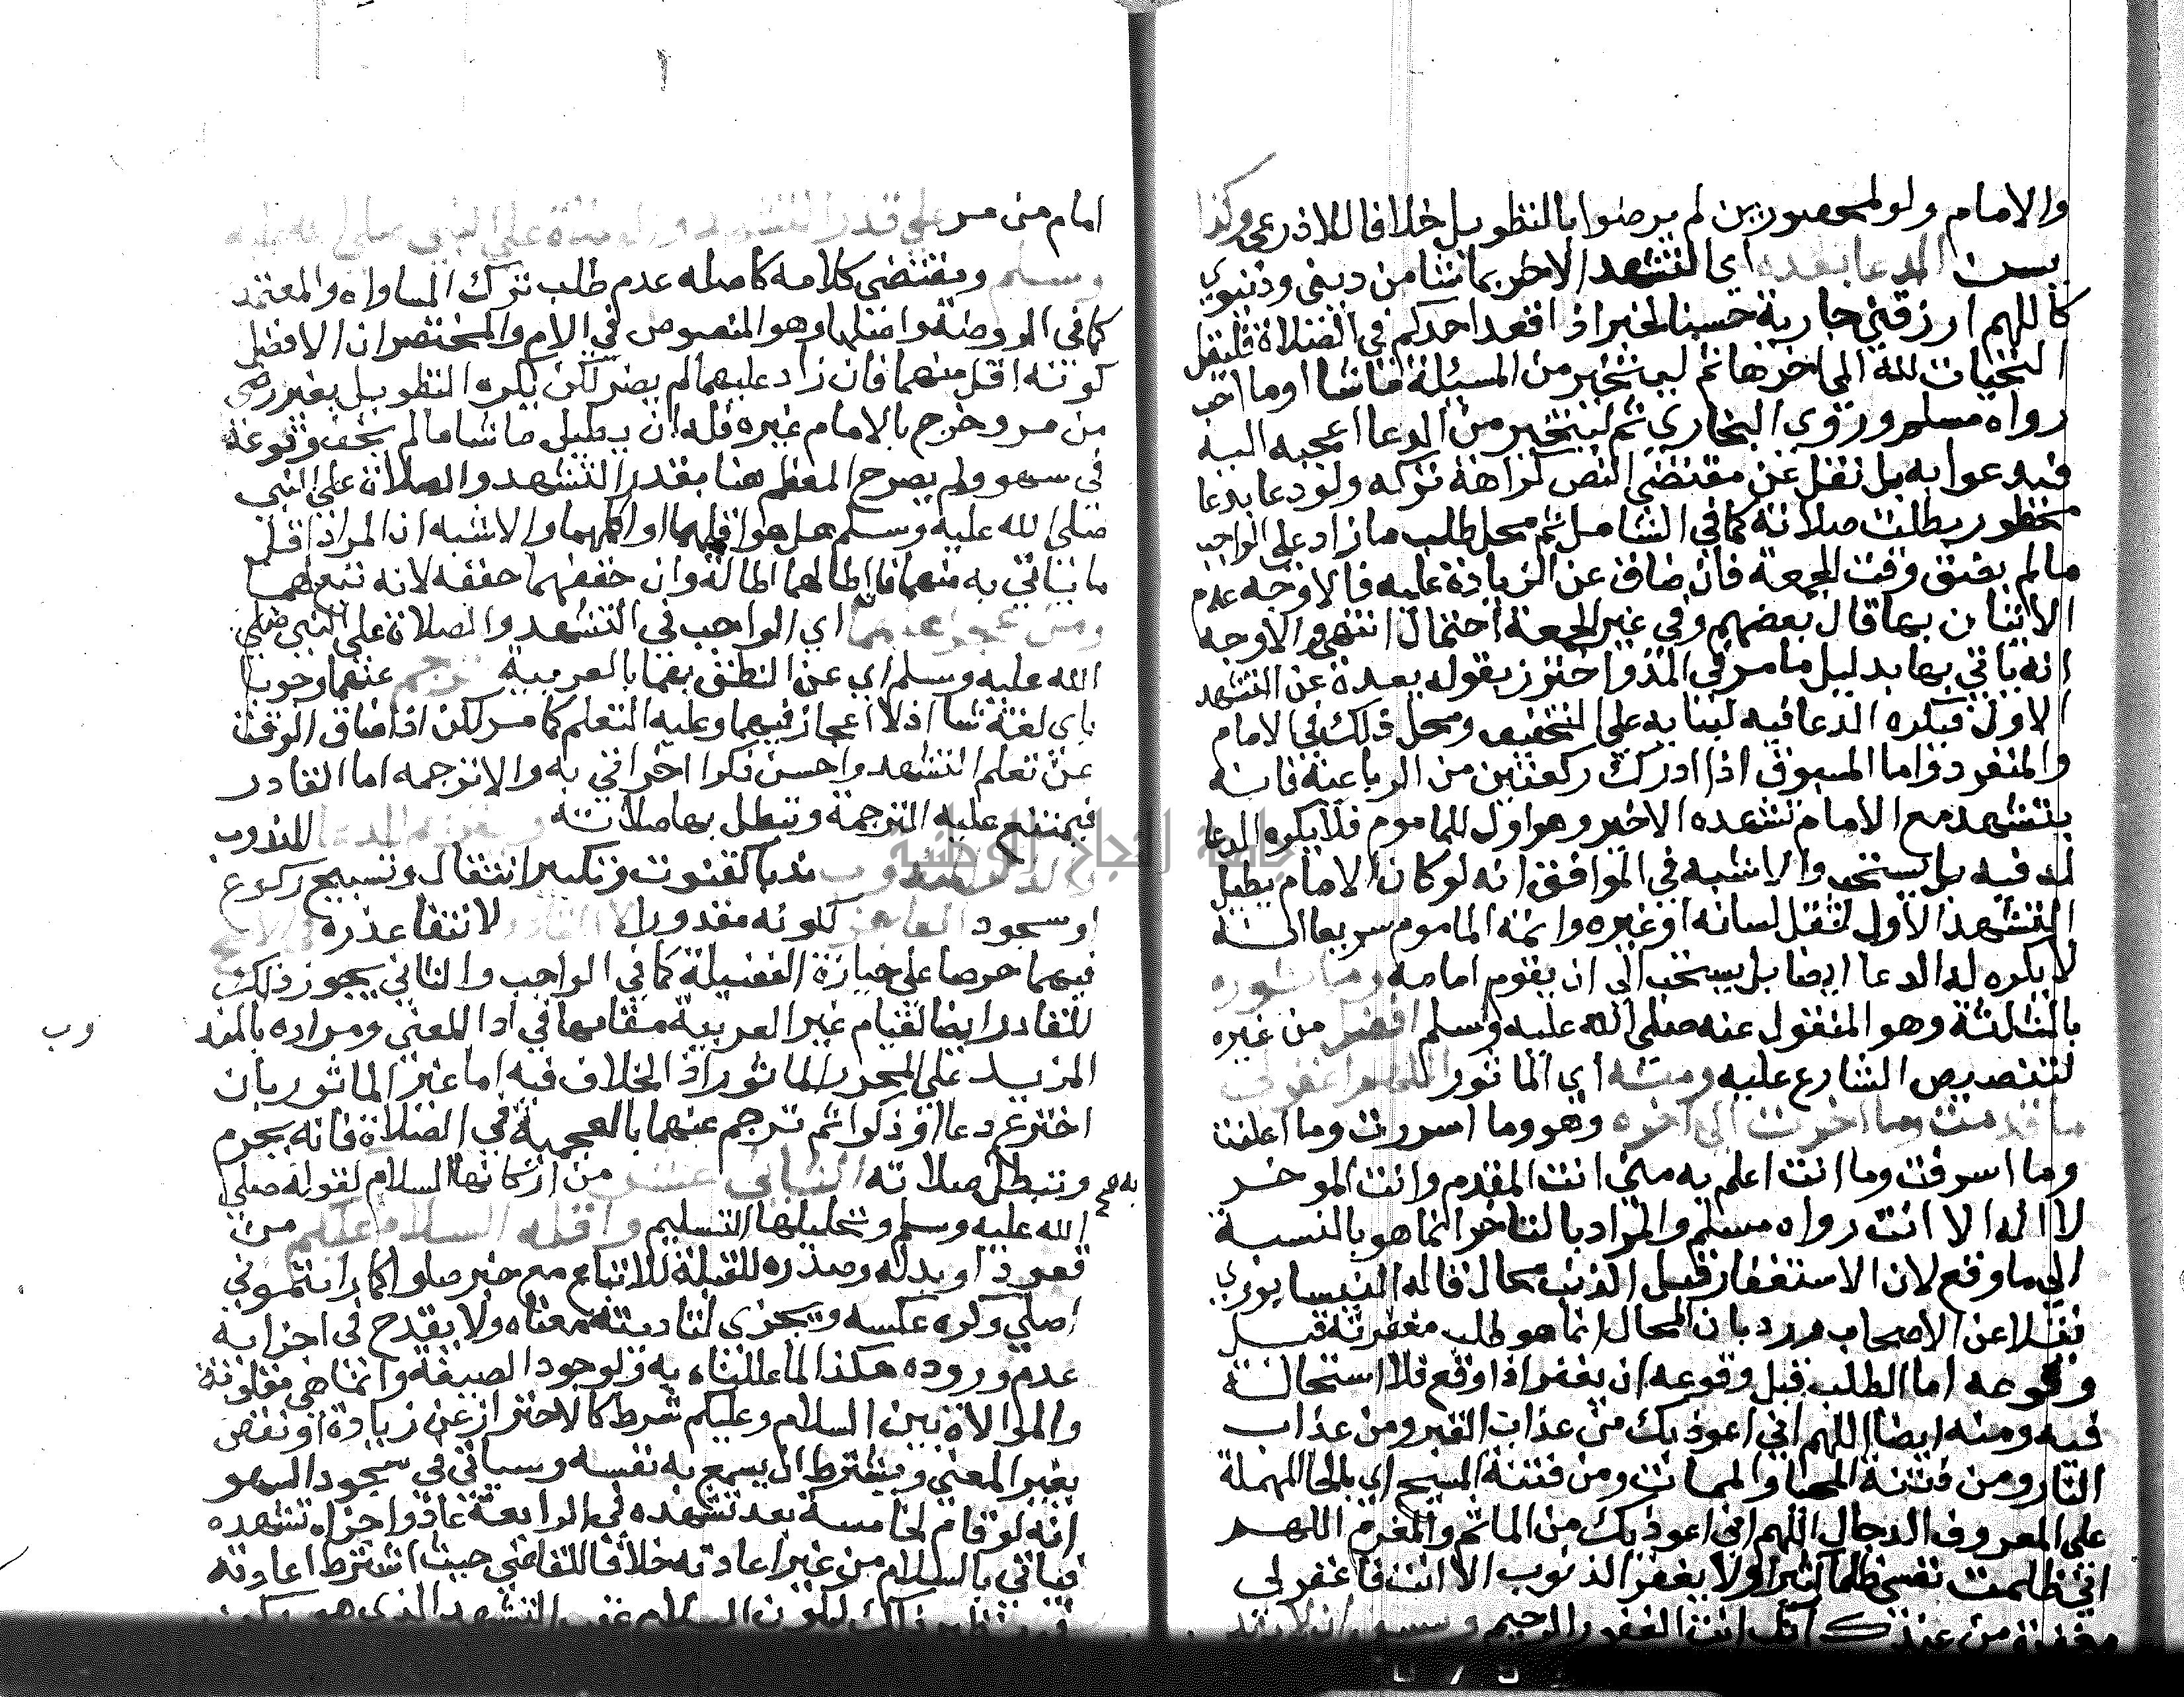 والامام ولو لمحصورين لم يرضوا بالتطويل خلافا للاذرعي وكذا
يسن الدعا بعده اي التشهد الاخر بما شا من ديني ودنيوي
كاللهم ارزقني جارية حسنا لخبر اذا قعد احدكم في الصلاة فليقل
التحيات لله الى اخرها ثم ليتخير من المسئلة ماشا او ما احب
رواه مسلم وروى البخاري ثم ليتخير من الدعا اعجبه اليه
فيدعوا به بل نقل عن مقتضي النص كراهة تركه ولو دعا بدعا
محظور بطلت صلاته كما في الشامل ثم محل طلب ما زاد على الواجب
مالم يضق وقت الجمعة فان ضاق عن الزيادة عليه فالاوجه عدم
الاتيان بها قال بعضهم وفي غير الجمعة احتمال انتهى والاوجه
انه ياتي بها بدليل ما مر في المد واحترز بقوله بعده عن التشهد
الاول فيكره الدعا فيه لبنايه على التخفيف ومحل ذلك في الامام
والمنفرد واما المسبوق اذا ادرك ركعتين من الرباعية فانه
يتشهد مع الامام تشهده الاخير وهو اول للماموم فلا يكره الدعا
له فيه بل يستحب والاشبه في الموافق انه لو كان الامام يطيل
التشهد الاول لثقل لسانه او غيره واتمه الماموم سريعا انه
لا يكره له الدعا ايضا بل يستحب الى ان يقوم امامه وماثوره
بالمثلثة وهو المنقول عنه صلى الله عليه وسلم افضل من غيره
لتنصيص الشارع عليه ومنه اي الماثور اللهم اغفر لي
ما قدمت وما اخرت الى اخره وهو وما اسررت وما اعلنت
وما اسرفت وما انت اعلم به مني انت المقدم وانت الموخر
لا اله الا انت رواه مسلم والمراد بالتاخر انما هو بالنسبة
الى ما وقع لان الاستغفار قبل الذنب محال قاله النيسابوري
نقلا عن الاصحاب ورد بان المحال انما هو طلب مغفرته قبل
وقوعه اما الطلب قبل وقوعه ان يغفر اذا وقع فلا استحالة
فيه ومنه ايضا اللهم اني اعوذ بك من عذاب القبر ومن عذاب
النار ومن فتنة المحيا والممات ومن فتنة المسيح اي بالحا المهملة
على المعروف الدجال اللهم اني اعوذ بك من الماثم والمغرم اللهم
اني ظلمت نفسي ظلما كثيرا ولا يغفر الذنوب الا انت فاغفر لي
مغفرة من عندك انك انت الغفور الرحيم
امام من مر على قدر التشهد والصلاة على النبي صلى الله عليه
وسلم ويقتضي كلامه كاصله عدم طلب ترك المساواه والمعتمد
كما في الروضة واصلها وهو المنصوص في الام والمختصر ان الافضل
كونه اقل منهما فان زاد عليهما لم يضر لكن يكره التطويل بغير رضى
من مر وخرج بالامام غيره فله ان يطيل ماشا مالم يخف وقوعه
في سهو ولم يصرح المعظم هنا بقدر التشهد والصلاة على النبي
صلى الله عليه وسلم هل هو اقلهما او اكملهما والاشبه ان المراد اقل
ما ياتي به منهما فان اطالهما اطاله وان خففهما خففه لانه تبع لهما
ومن عجز عنهما اي الواجب في التشهد والصلاة على النبي صلى
الله عليه وسلم اي عن النطق بهما بالعربية ترجم عنهما وجوبا
باي لغة شا اذ لا اعجاز فيهما وعليه التعلم كما مر لكن اذا ضاق الوقت
عن تعلم التشهد واحسن ذكرا اخر اتى به والا ترجمه اما القادر
فيمتنع عليه الترجمة وتبطل بها صلاته ويترجم للدعا المندوب
والذكر المندوب ندبا كقنوت وتكبير انتقال وتسبيح ركوع
او سجود العاجز لكونه معذورا لا القادر لانتفا عذره في الاصح
فيهما حرصا على حيازة الفضيلة كما في الواجب والثاني يجوز ذلك
للقادر ايضا لقيام غير العربية مقامها في ادا المعنى ومراده بالمند
وب
المزيد على المحرر الماثور اذ الخلاف فيه اما غير الماثور بان
اخترع دعا او ذكرا ثم ترجم عنهما بالعجمية في الصلاة فانه يحرم
وتبطل صلاته الثاني عشر من اركانها السلام لقوله صلى
به مح
الله عليه وسلم وتحليلها التسليم واقله السلام عليكم من
قعود او بدله وصدره للقبلة للاتباع مع خبر صلوا كما رايتموني
اصلي وكره عكسه ويجزى لتاديته معناه ولا يقدح في اجزايه
عدم وروده هكذا لوجود الصيغة وانما هي مقلوبة
والموالاة بين السلام وعليكم شرط كالاحتراز عن زيادة او نقص
يغير المعنى ويشترط ان يسمع به نفسه وسياتي في سجود السهو
انه لو قام لخامسة بعد تشهده في الرابعة عاد واجزاه تشهده
فياتي بالسلام من غير اعادته خلافا للقاضي حيث اشترط اعادته
جامعة النجاح الوطنية